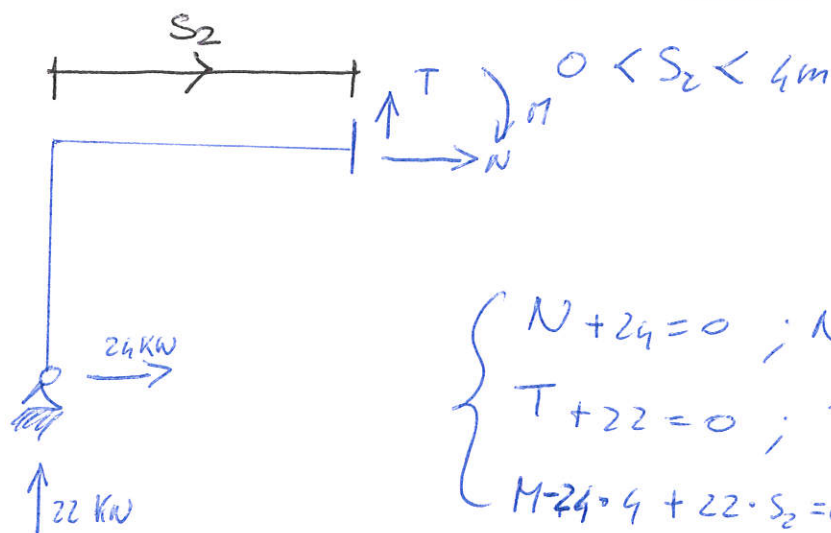 S2
T
M
N
0 < S2 < 4m
24KN
22 KN
N + 24 = 0 ; N
T + 22 = 0 ;
M-24·4 + 22·S2 =